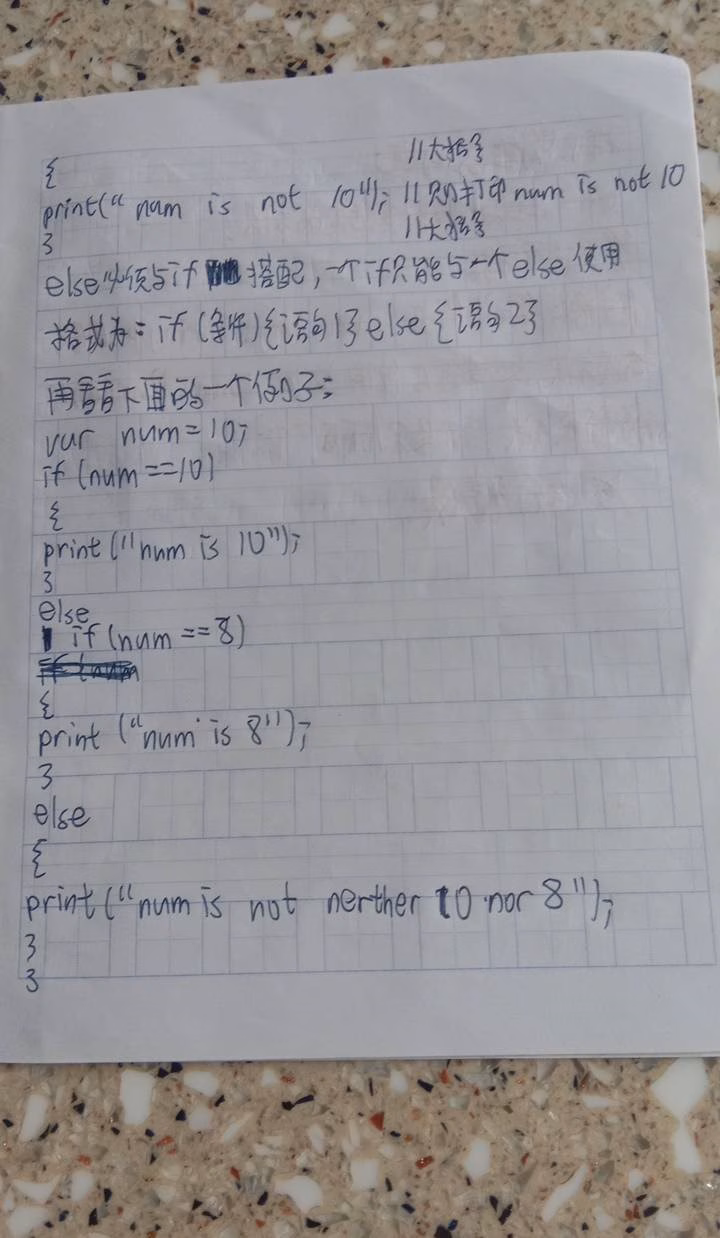 { //大括号
print(“nam is not 10"); //则打印num is not 10
} //大括号
else必须与if搭配，一个if只能与一个else使用
格式为：if(条件){语句1}else{语句2}
再看看下面的一个例子：
var num=10;
if(num==10)
{
print("num is 10");
}
else
if(num==8)
{
print (“num is 8");
}
else
{
print(“num is not nerther 10 nor 8");
}
}